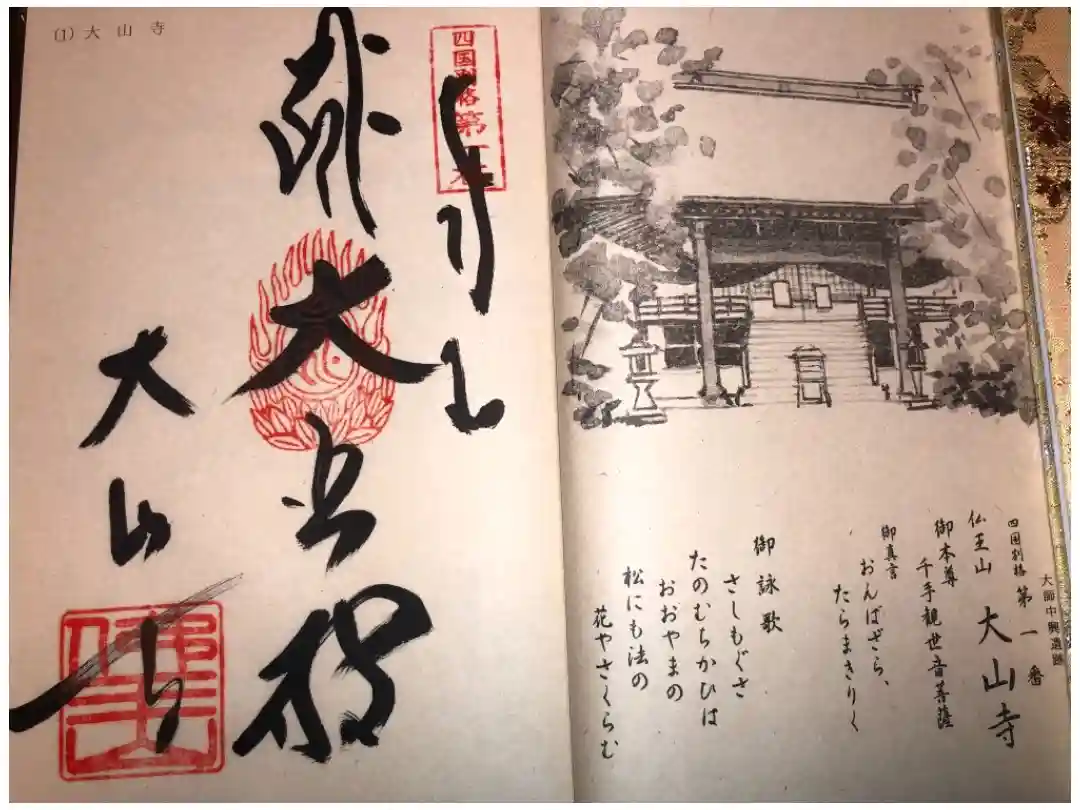 大師中興遺跡
四国別格 第一番
仏王山 大山寺
御本尊 千手観世音菩薩
御真言 おんばざら、
たらまきりく
御詠歌
さしもぐさ
たのむちかひは
おおやまの
松にも法の
花やさくらむ
(1) 大山寺
四国別格第一番
大
大山寺